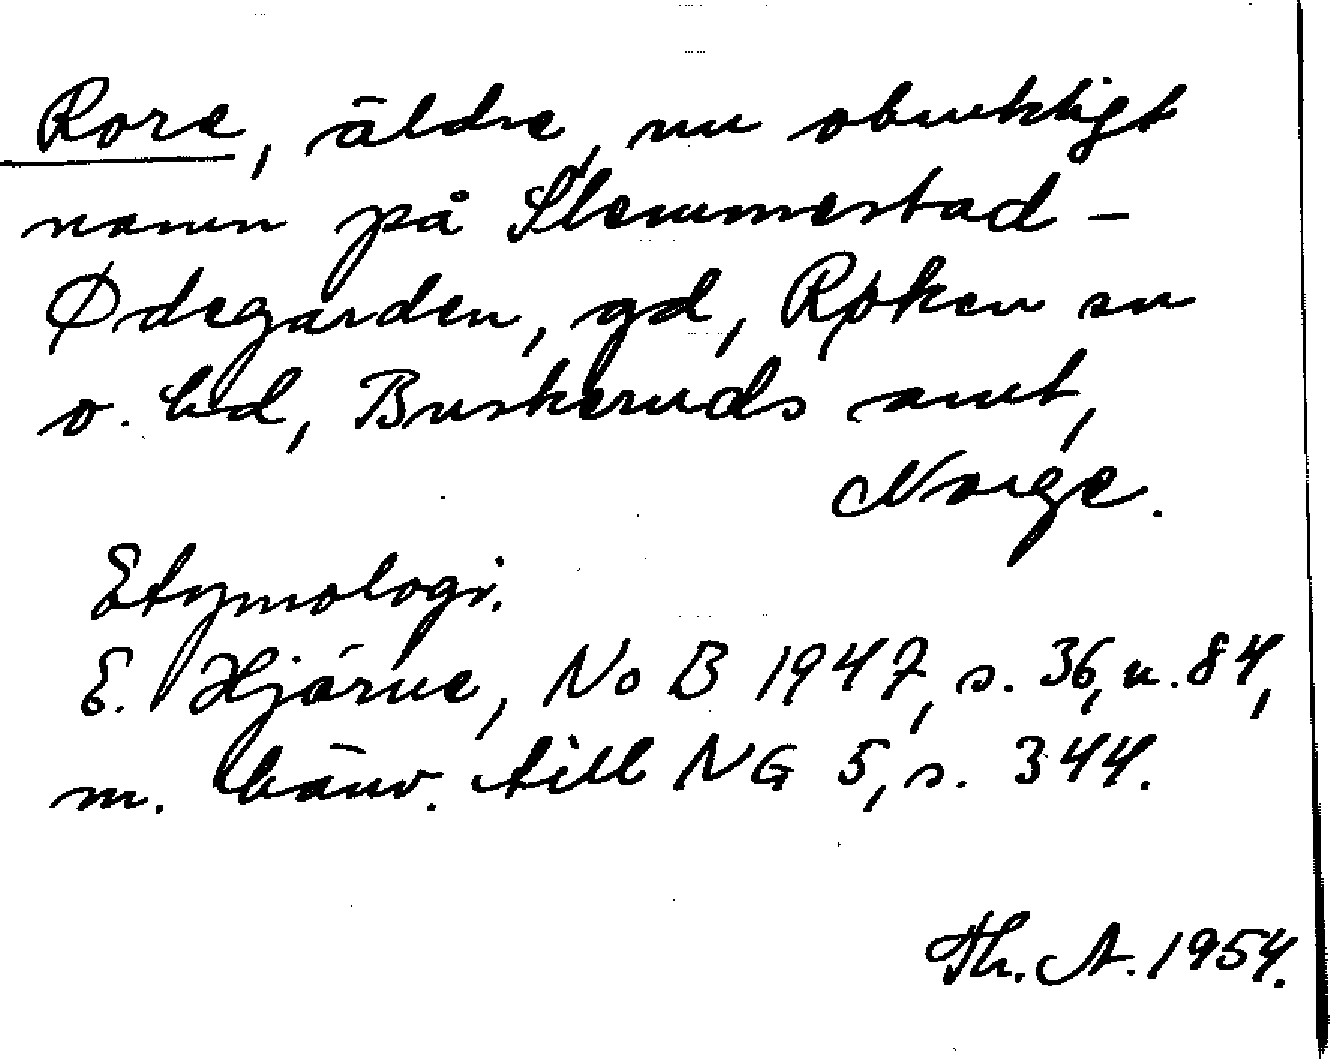 Rore, äldre, nu obruktligt
namn på Slemmestad-
Ødegarden, gd, Røken sn
o. hd, Buskeruds amt,
Norge.
Etymologi.
E. Hjärne, NoB 1947, s. 36, n. 84,
m. hänv. till NG 5, s. 344.
Th. A. 1954.